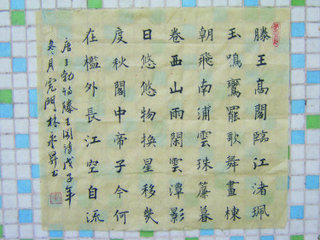 滕王高閣臨江渚珮
玉鳴鸞罷歌舞畫棟
朝飛南浦雲珠簾暮
卷西山雨閑雲潭影
日悠悠物換星移幾
度秋閣中帝子今何
在檻外長江空自流
唐王勃詩滕王閣詩戊子年
冬月